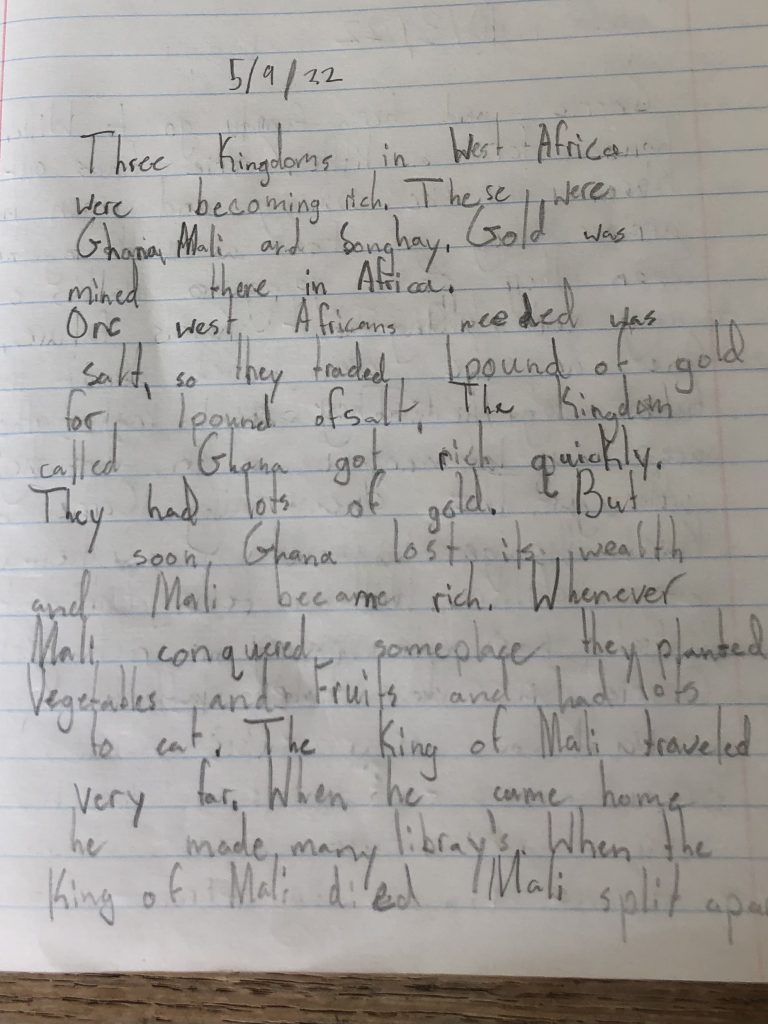 5/9/22
Three Kingdoms in West Africa
were becoming rich. These were
Ghana, Mali and Songhay. Gold was
mined there in Africa.
One west Africans needed was
salt, so they traded 1pound of gold
for 1pound ofsalt. The Kingdom
called Ghana got rich quickly.
They had lots of gold. But
soon Ghana lost its wealth
and Mali became rich. Whenever
Mali conquered someplace they planted
Vegetables and Fruits and had lots
to eat. The King of Mali traveled
very far. When he came home
he made many libray's. When the
King of Mali died Mali split apar